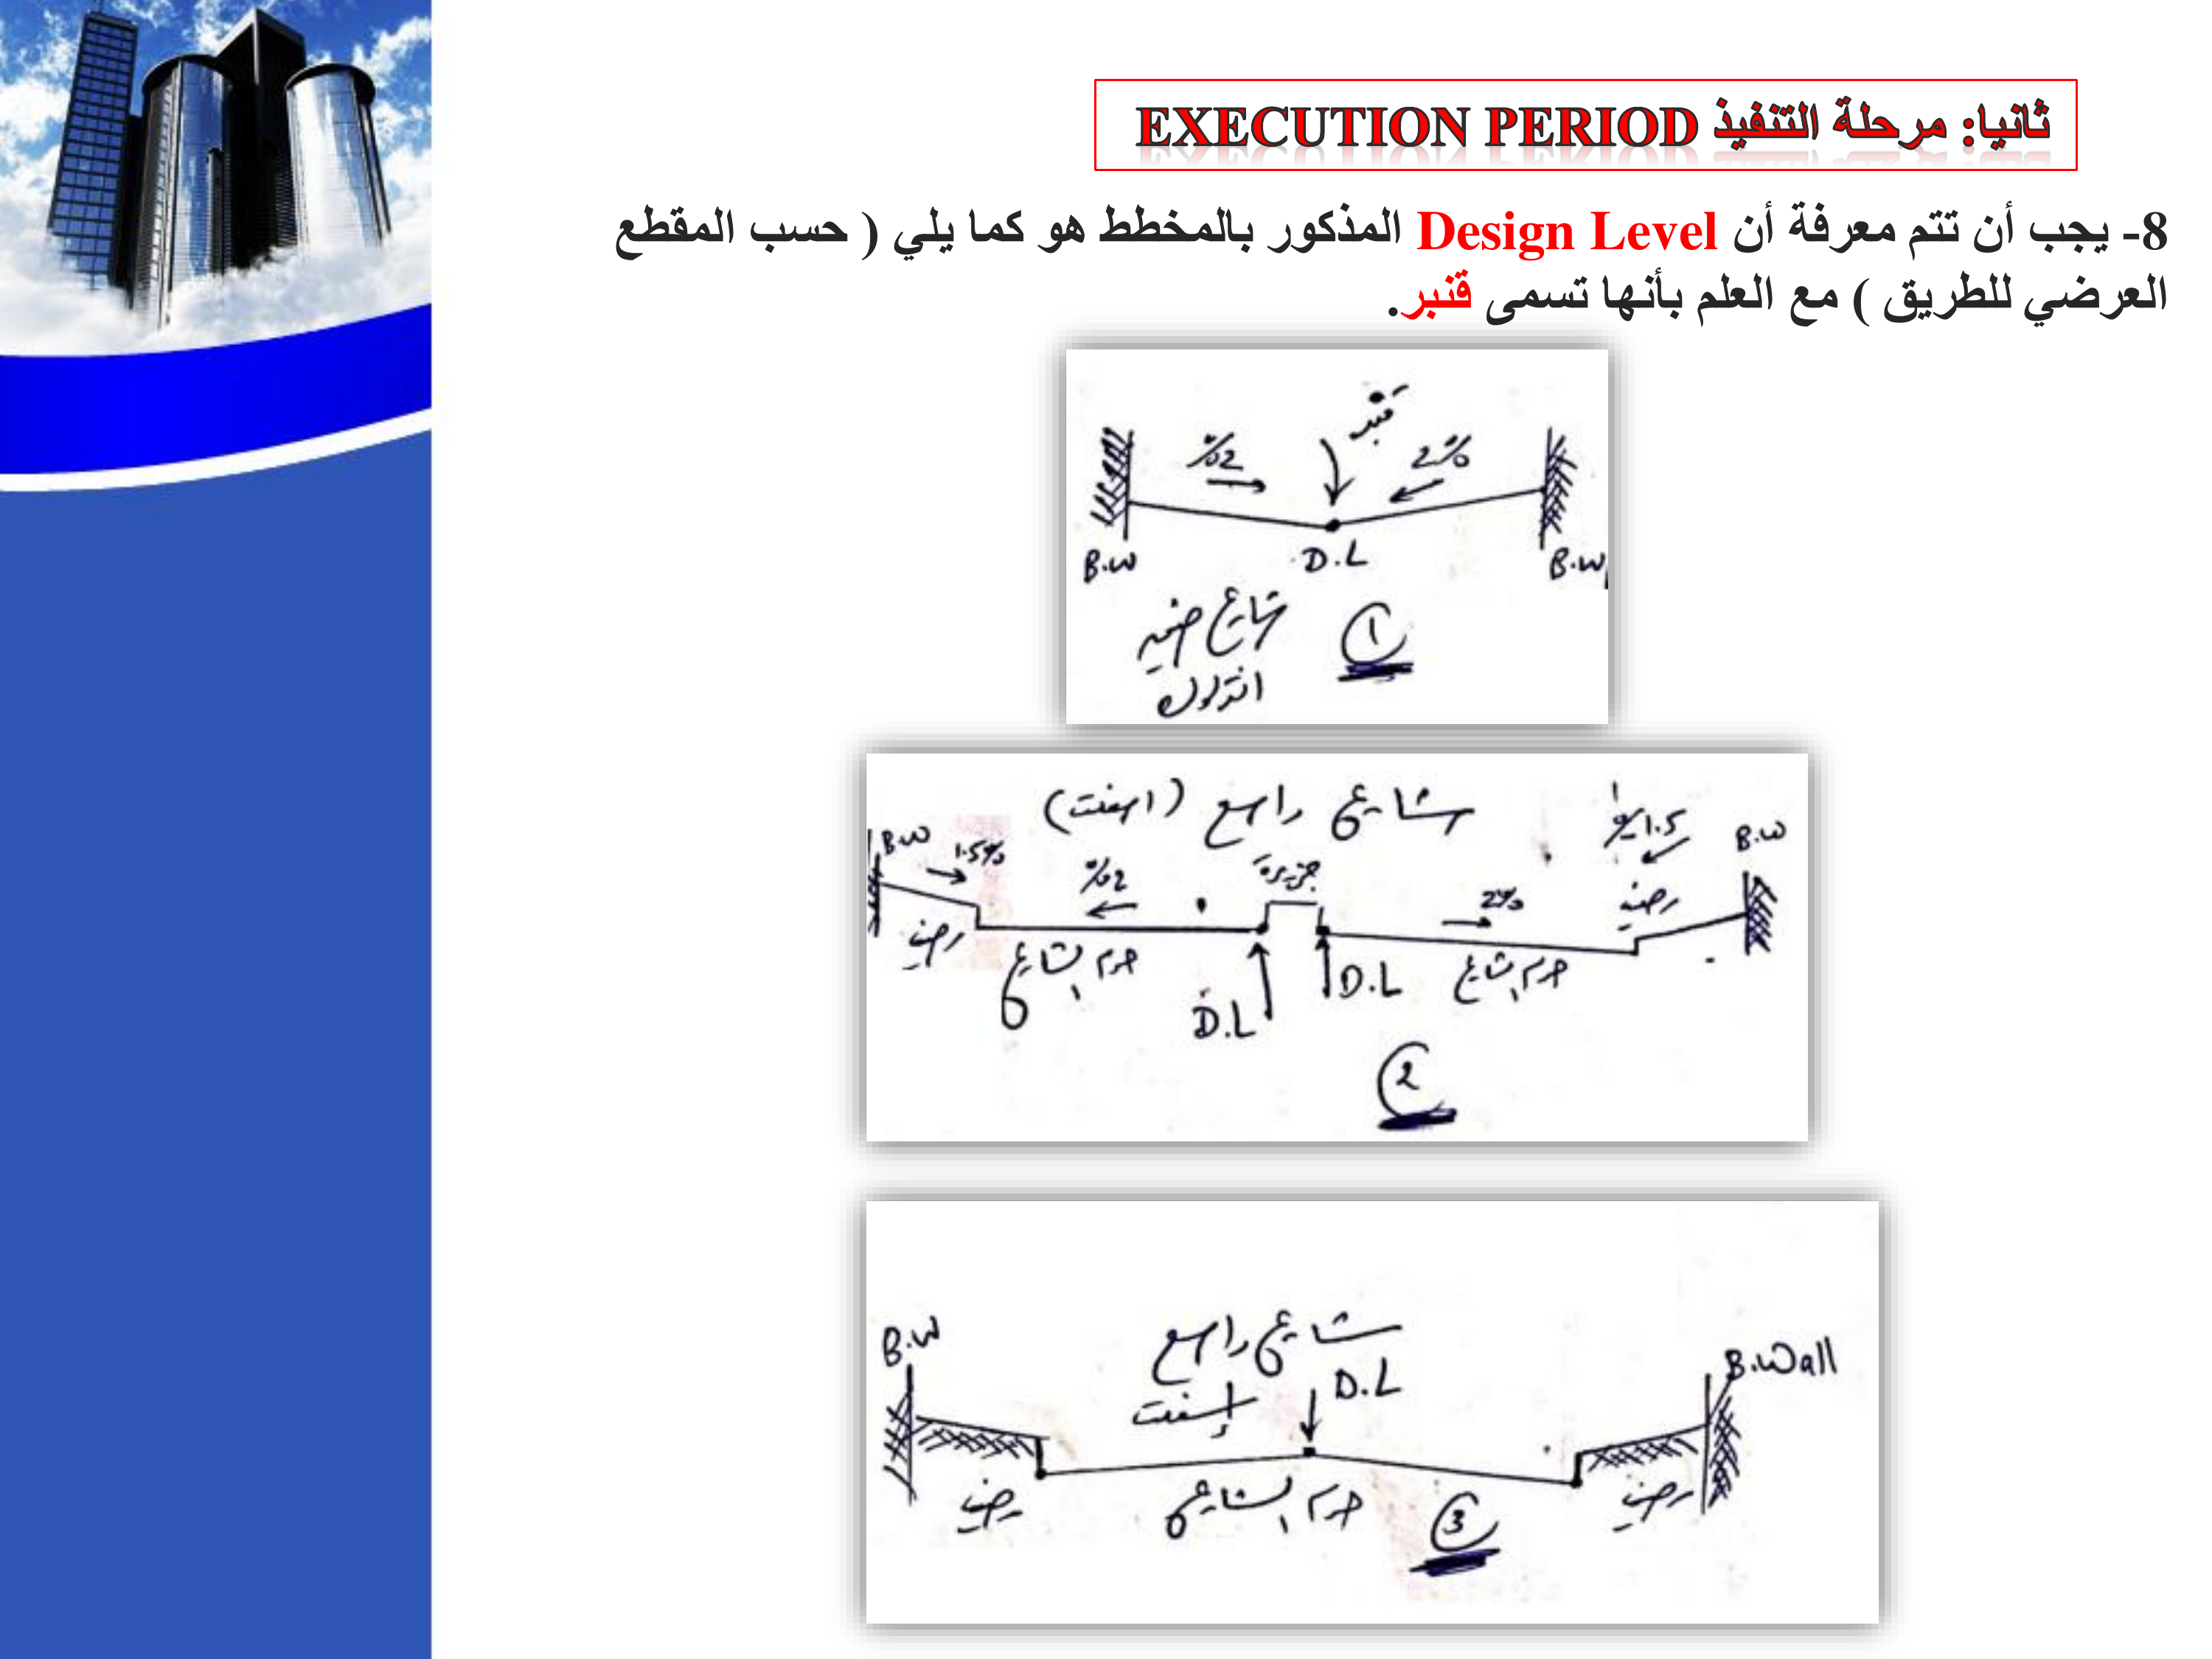 ثانيا: مرحلة التنفيذ EXECUTION PERIOD
8- يجب أن تتم معرفة أن Design Level المذكور بالمخطط هو كما يلي ( حسب المقطع
العرضي للطريق ) مع العلم بأنها تسمى قنبر.
قنبر
%2
2%
B.W
D.L
B.W
شارع ضيق
انترلوك
1
شارع واسع (اسفلت)
B.W
1.5%
%2
جزيرة
2%
%1.5
B.W
رصيف
رصيف
حرم الشارع
D.L
D.L
حرم الشارع
2
B.W
شارع واسع
إسفلت
D.L
B.Wall
رصيف
حرم الشارع
3
رصيف